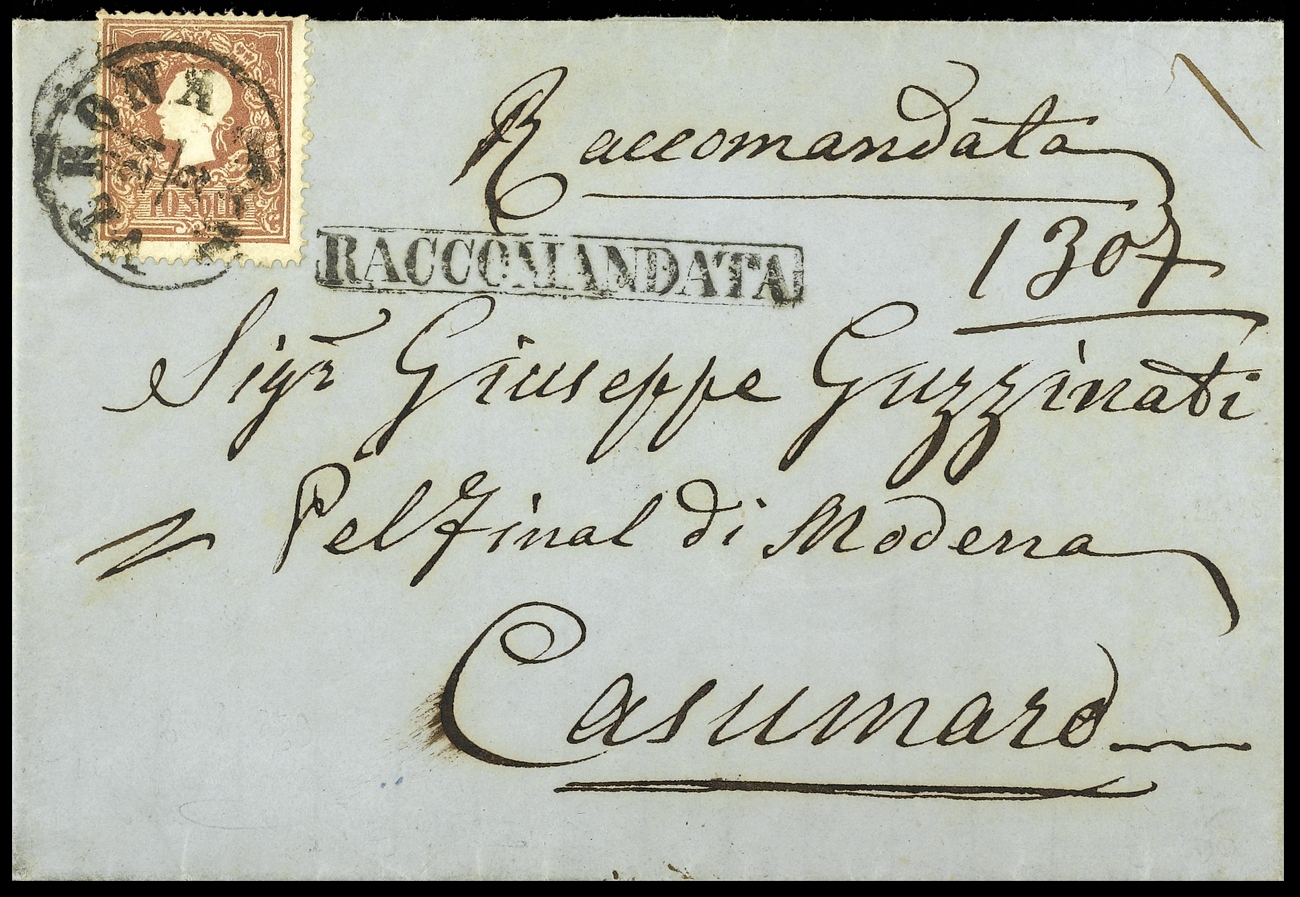 VERONA
10 SOLDI
Raccomandata
RACCOMANDATA
1307
Sigr Giuseppe Guzzinati
Pel Final di Modena
Casumaro